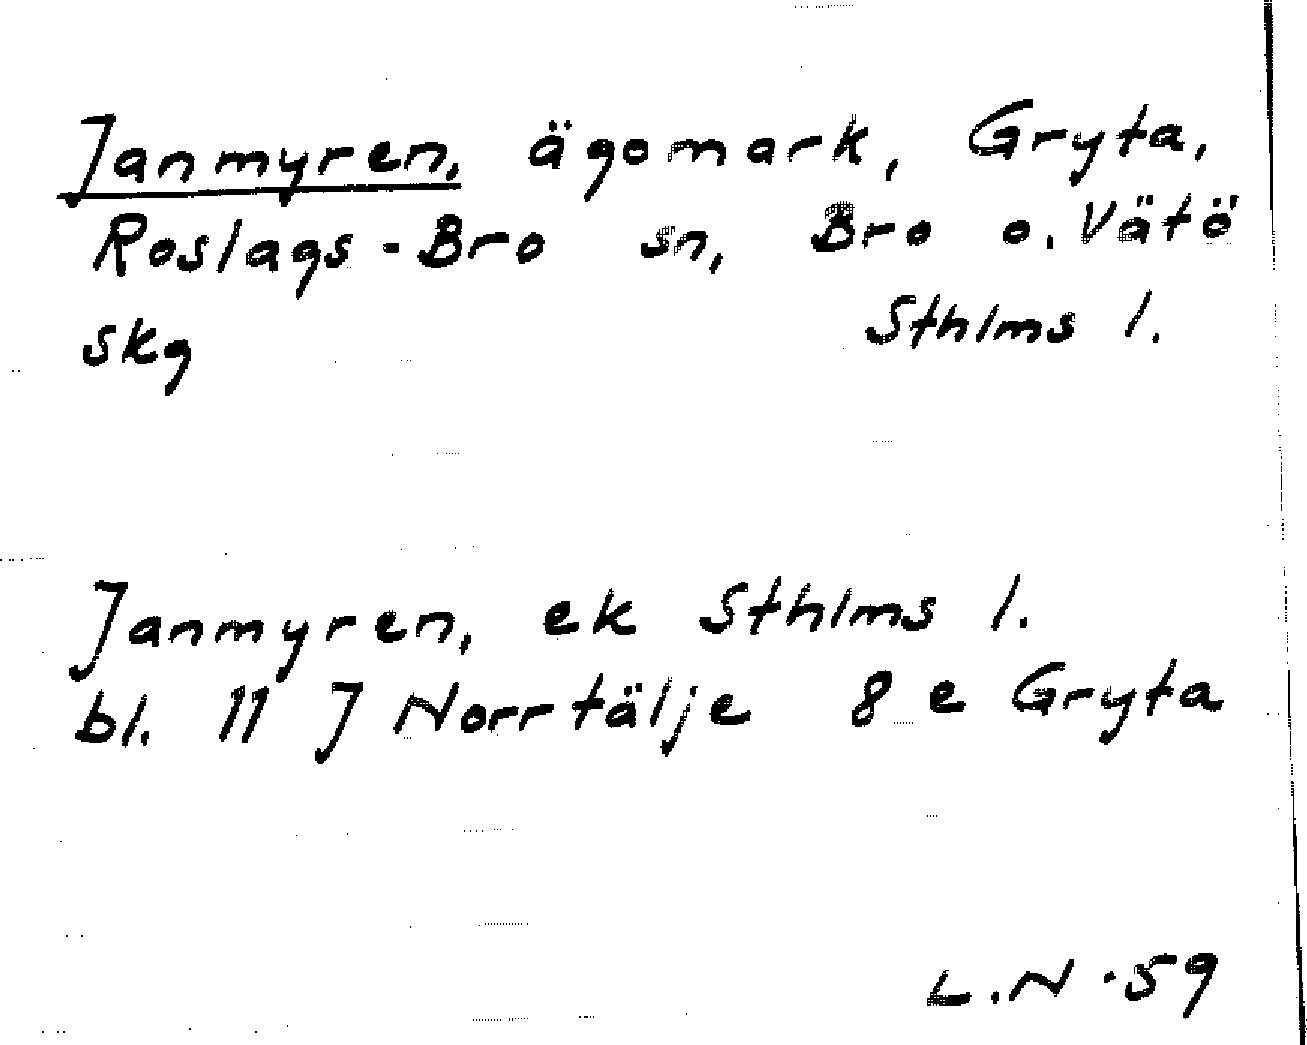 Janmyren, ägomark, Gryta,
Roslags-Bro sn, Bro o. Vätö
skg Sthlms l.
Janmyren, ek Sthlms l.
bl. 11 J Norrtälje 8 e Gryta
L.N -59